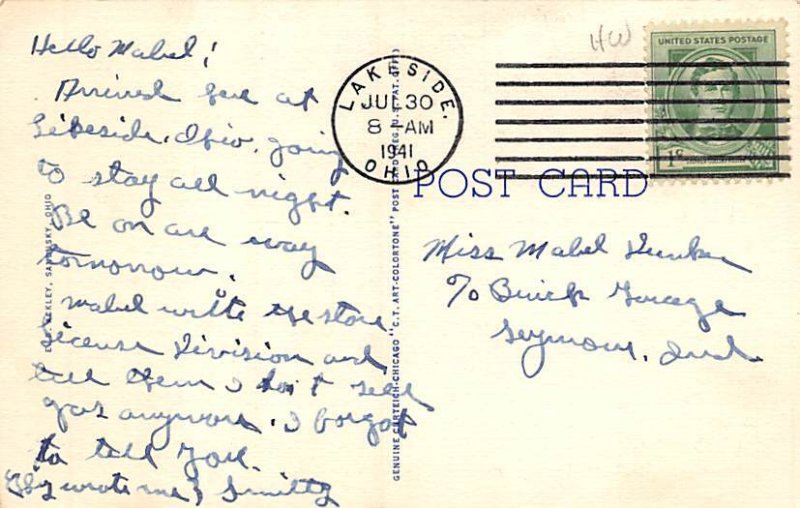 Hello Mabel!
Arrived here at
Lakeside, Ohio, going
to stay all night.
Be on are way
tomorrow.
Mabel write the store
License Division and
tell them I don't sell
gas anymore. I forgot
to tell you.
They wrote me, Smitty
HW
LAKESIDE,
JUL 30
8 - AM
1941
OHIO
UNITED STATES POSTAGE
1¢
POST CARD
Miss Mabel
% Buick Garage
Seymour, Ind.
KLEY, SANDUSKY, OHIO
GENUINE CURTEICH-CHICAGO "C.T. ART-COLORTONE" POST CARD (REG. U.S. PAT. OFF.)